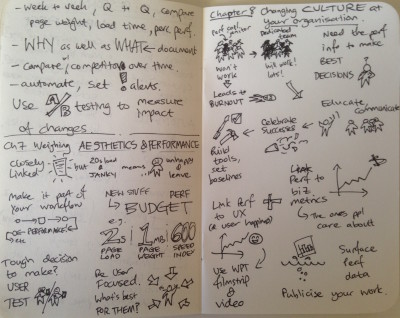 - week + week, Q + Q, compare
page weight, load time, perc. perf.
- WHY as well as WHAT ← document
- compare competitors over time.
- automate, set ! alerts.
Use A/B testing to measure
impact
of changes.
Ch7 Weighing AESTHETICS & PERFORMANCE
Closely
Linked
but
load
& JANKY
means
unhappy
& leave
Make it part of
your workflow
PERFORMANCE
etc
NEW STUFF
PERF
BUDGET
e.g.
2s
PAGE
LOAD
1MB
PAGE
WEIGHT
600
SPEED
INDEX
Tough decision
to make?
USER
TEST
Be User
Focused.
What's best
for THEM?
Chapter 8 Changing CULTURE at
your organisation.
Perf cop/
janitor
won't
work
Leads to
BURNOUT
Dedicated
team
will work!
lots!
Need the perf
info to make
BEST
DECISIONS
Educate
Communicate
Celebrate
Successes
Build
tools,
set
baselines
Link
Perf to
biz
metrics
The ones ppl
care about
Link Perf
to UX
(ie user happiness)
Use WPT
filmstrip
video
Surface
Perf
data
Publicise your work.